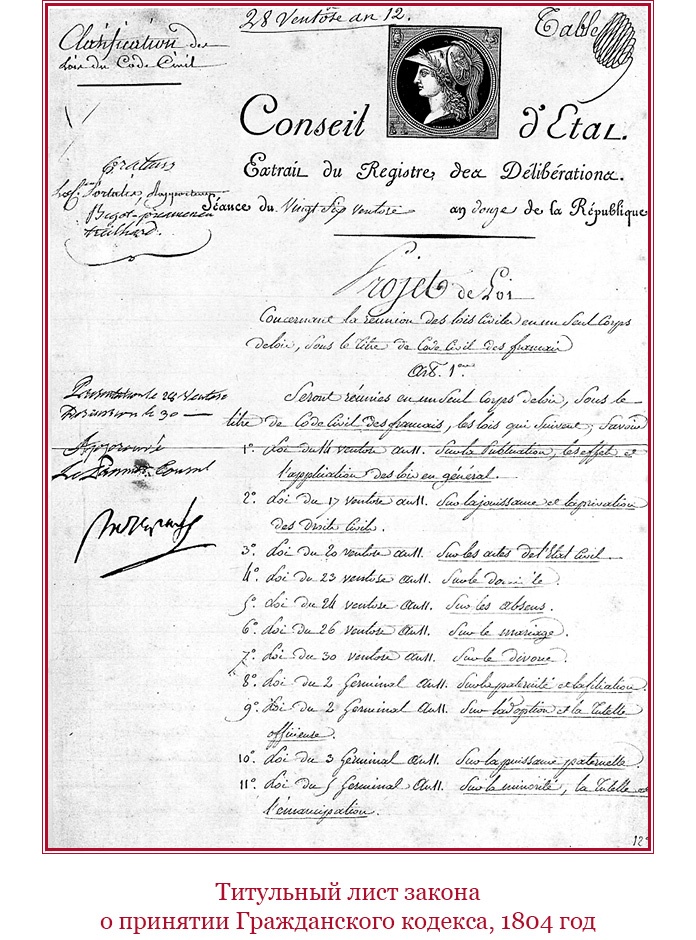 28 Ventôse an 12.
Table
Classification des
Lois du Code Civil
Conseil d'Etat.
Extrait du Registre des Délibérations.
Séance du Vingt Sep ventose an douze de la République
Portalis,
Bigot-préameneu
Treilhard.
Projet de Loi
Concernant la réunion des lois civiles en un seul Corps
de loix, sous le titre de Code Civil des français
Art. 1er
Présentation le 24 Ventose
Discussion le 30
Approuvé
Le Premier Consul
Seront réunies en un seul Corps de loix, sous le
titre de Code Civil des français, les lois qui suivent; savoir
1o. Loi du 14 ventose an 11. Sur la Publication, les effets et
l'application des lois en général.
2o. Loi du 17 ventose an 11. Sur la jouissance et la privation
des droits civils.
3o. Loi du 20 ventose an 11. Sur les actes de l'Etat Civil.
4o. Loi du 23 ventose an 11. Sur le domicile.
5o. Loi du 24 ventose an 11. Sur les absens.
6o. Loi du 26 ventose an 11. Sur le mariage.
7o. Loi du 30 ventose an 11. Sur le divorce.
8o. Loi du 2 Germinal an 11. Sur la paternité et la filiation.
9o. Loi du 2 Germinal an 11. Sur l'adoption et la Tutelle
officieuse.
10o. Loi du 3 Germinal an 11. Sur la puissance paternelle.
11o. Loi du 5 Germinal an 11. Sur la minorité, la Tutelle et
l'émancipation.
12o
Титульный лист закона
о принятии Гражданского кодекса, 1804 год